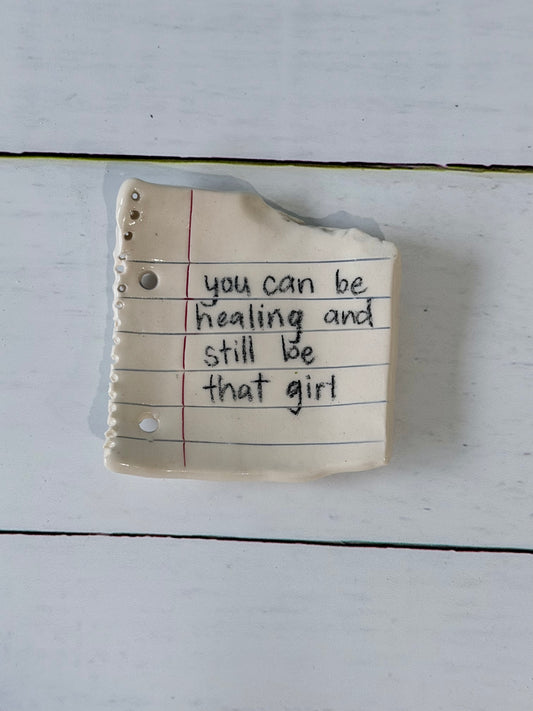 you can be
healing and
still be
that girl